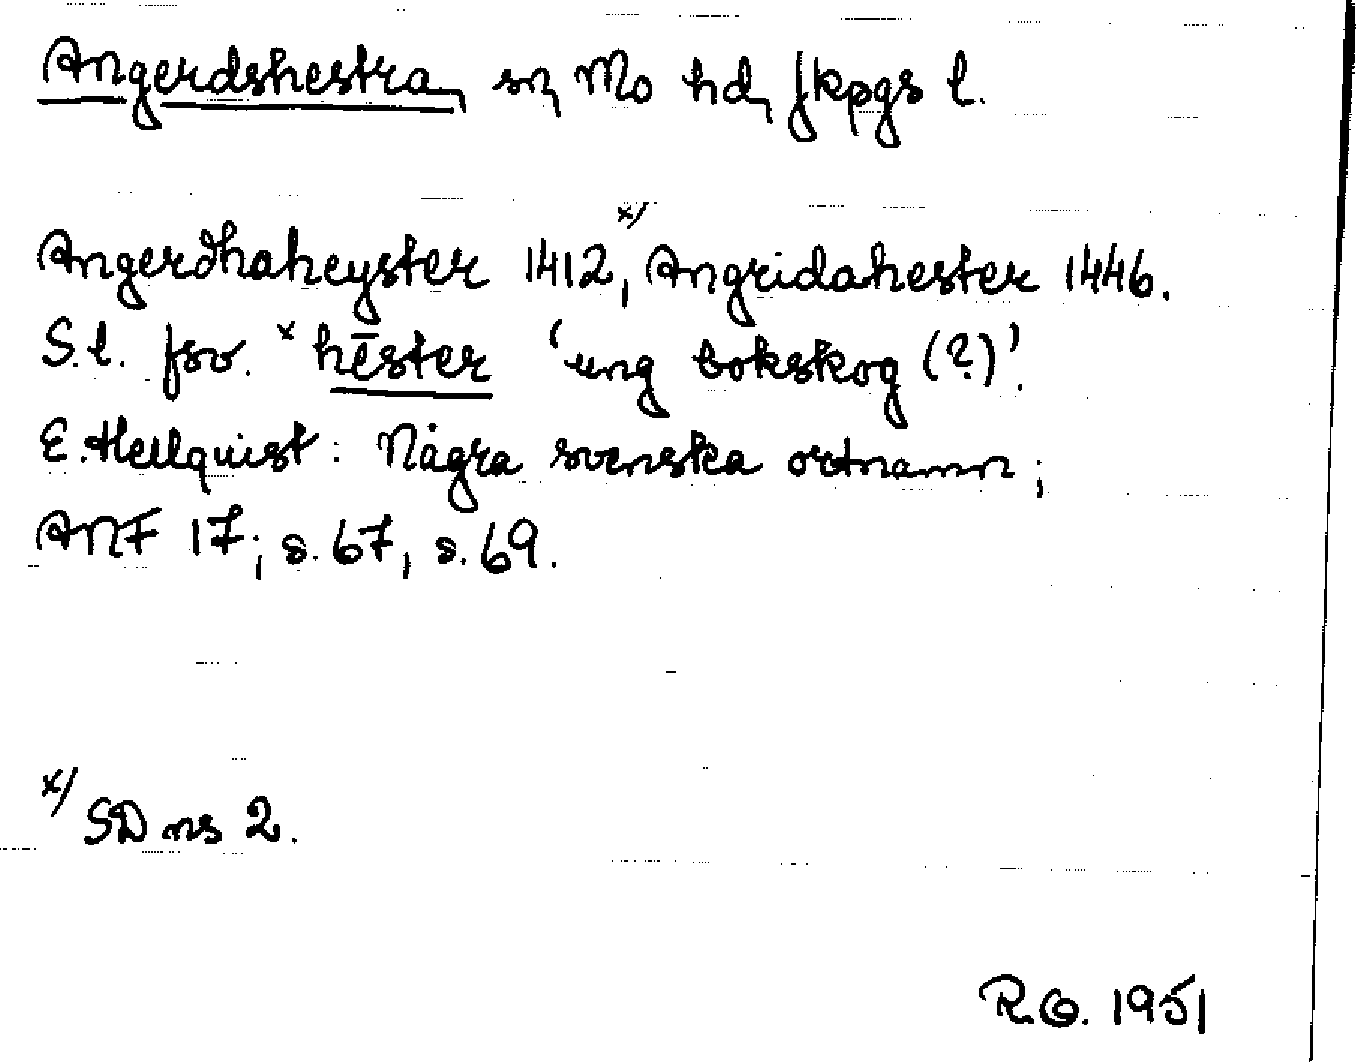 Angerdshestra, sn, Mo hd, Jkpgs l.
Angerdhaheyster 1412,ˣ⁾ Angridahester 1446.
S.l. fsv. ˣhēster ‘ung bokskog (?)’.
E. Hellquist: Några svenska ortnamn;
ANF 17; s. 67, s. 69.
ˣ⁾ SD ns 2.
R.G. 1951